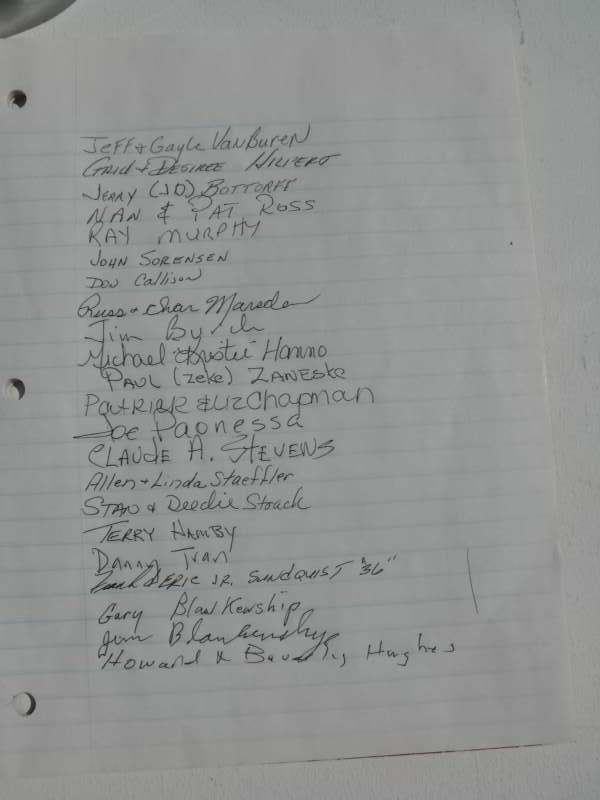 Jeff & Gayle VanBuren
& Desiree Hilpert
Jerry (JD) Bottorff
Nan & Pat Ross
Ray Murphy
John Sorensen
Don Callison
Russ & Char
Jim
Michael Hanno
Paul (Zeke) Zaneske
Patrick & Liz Chapman
Joe Paonessa
Claude A. Stevens
Allen + Linda Staeffler
Stan & Deedie Stoack
Terry Hamby
Danny Tran
Eric Jr. Sundquist "36"
Gary Blankenship
Blankenship
Howard & Hughes